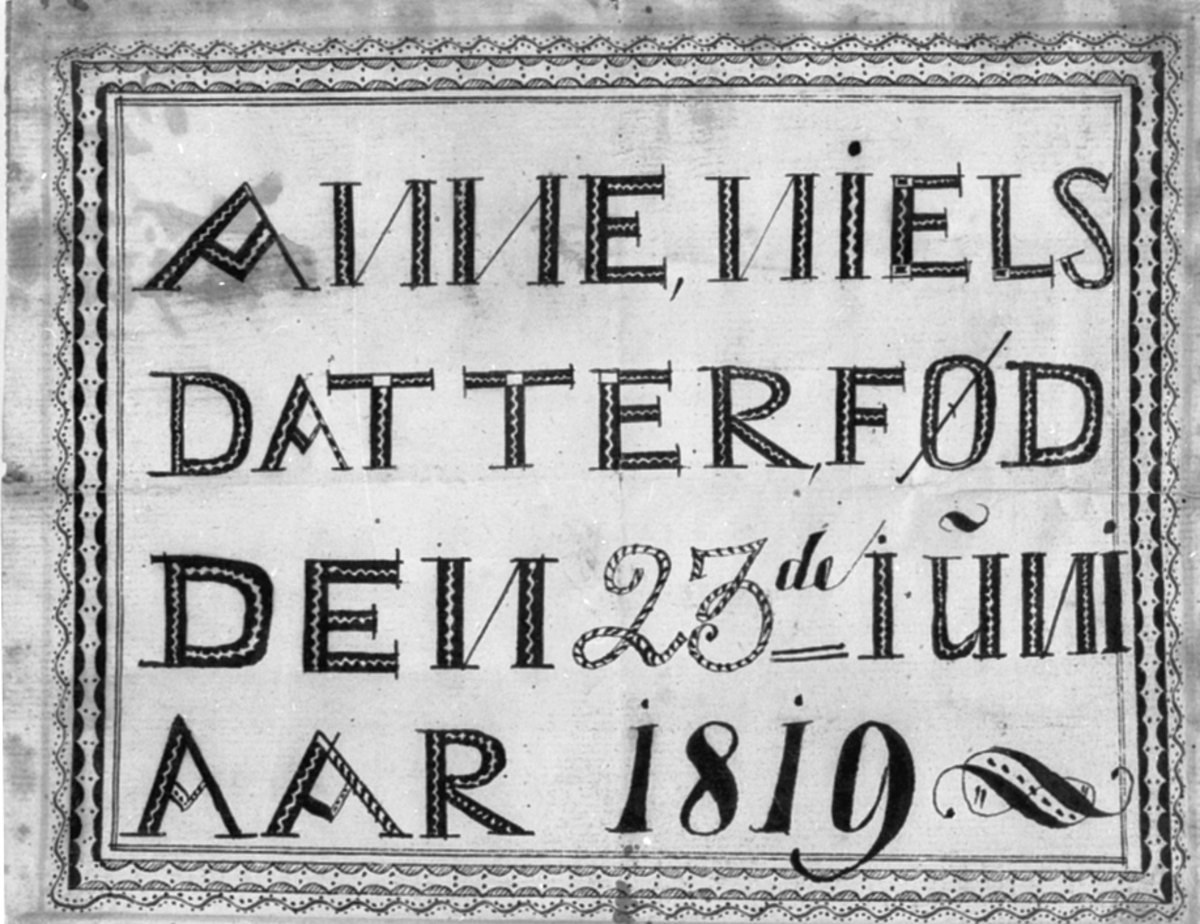 ANNE, NiELS
DATTER, FØD
DEN 23de iŭNi
AAR 1819